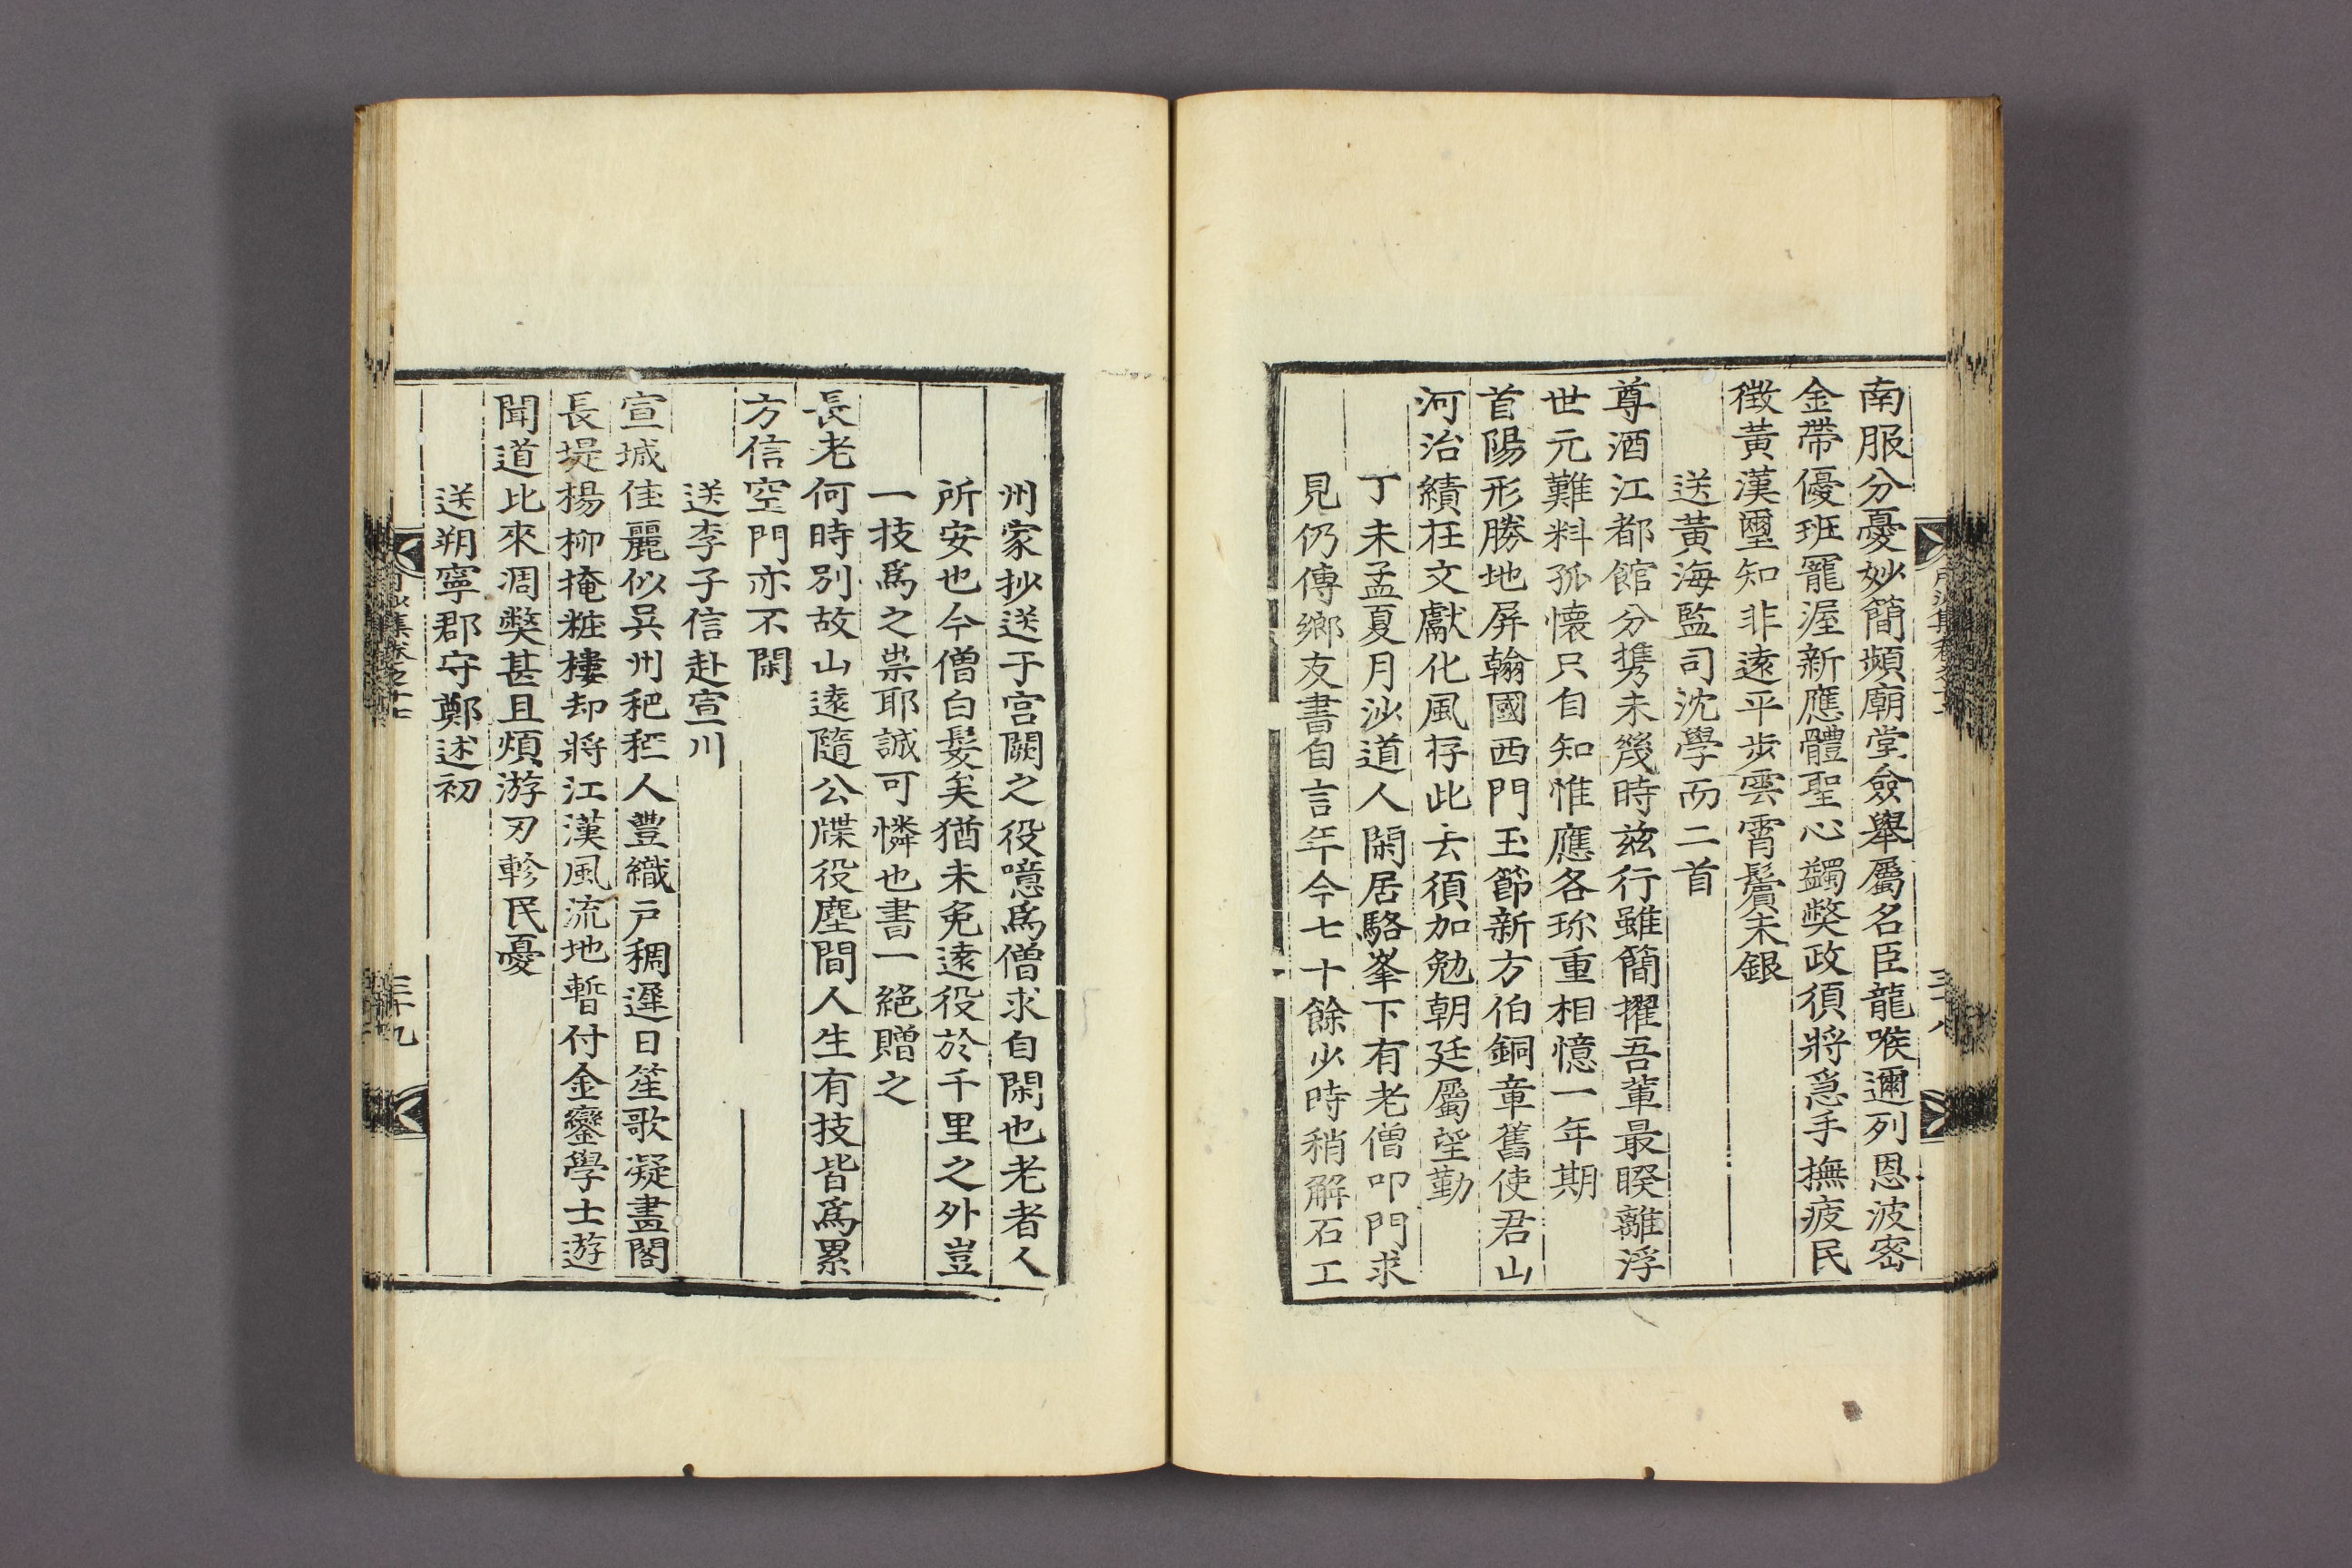 南服分憂妙簡頻廟堂僉舉屬名臣龍喉邇列恩波密
金帶優班寵渥新應體聖心蠲獘政須將急手撫疲民
徵黃漢璽知非遠平步雲霄鬢未銀
送黃海監司沈學而二首
尊酒江都館分携未幾時兹行雖簡擢吾輩最睽離浮
世元難料孤懷只自知惟應各珎重相憶一年期
首陽形勝地屏翰國西門玉節新方伯銅章舊使君山
河治績在文獻化風存此去須加勉朝廷屬望勤
丁未孟夏月沙道人閑居駱峯下有老僧叩門求
見仍傳鄉友書自言年今七十餘少時稍解石工
三十八
州家抄送于宮闕之役噫爲僧求自閑也老者人
所安也今僧白髮矣猶未免遠役於千里之外豈
一技爲之祟耶誠可憐也書一絕贈之
長老何時別故山遠隨公牒役塵間人生有技皆爲累
方信空門亦不閑
送李子信赴宣川
宣城佳麗似吳州䆉稏人豐織戶稠遲日笙歌凝畫閣
長堤楊柳掩粧樓却將江漢風流地暫付金鑾學士遊
聞道比來凋獘甚且煩游刃軫民憂
送朔寧郡守鄭述初
月沙集卷之十七
三十九